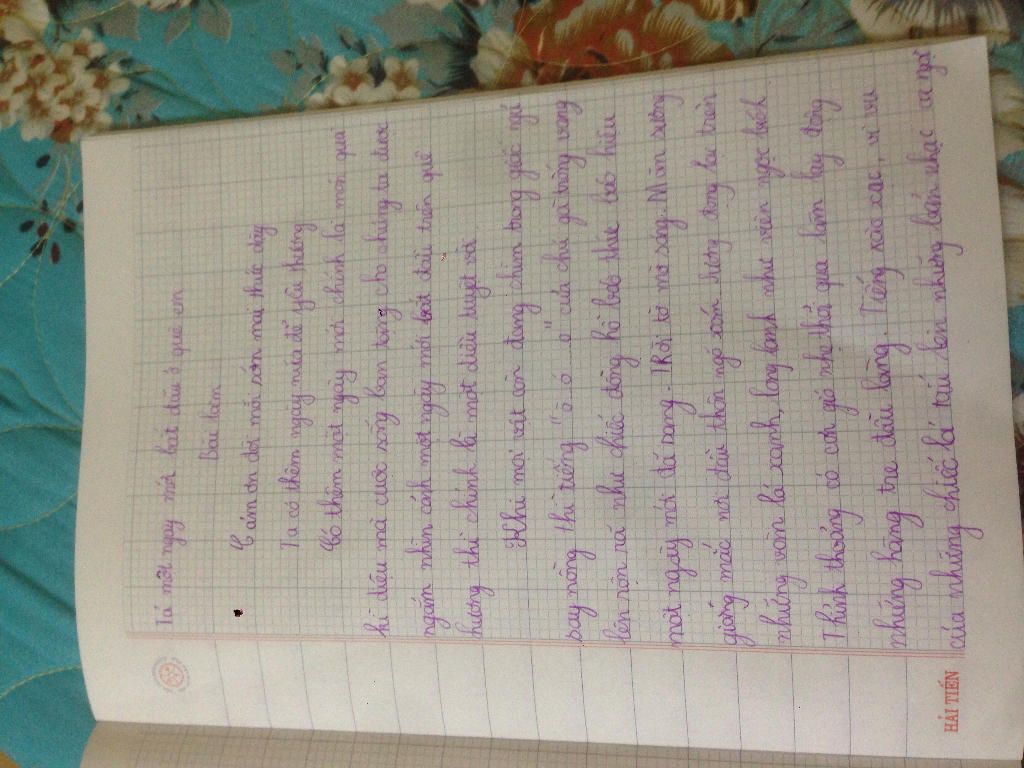 Tả một ngày mới bắt đầu ở quê em
Bài làm
Cảm ơn đời mỗi sớm mai thức dậy
Ta có thêm ngày nữa để yêu thương
Có thêm một ngày mới chính là món quà
kì diệu mà cuộc sống ban tặng cho chúng ta được
ngắm nhìn cảnh một ngày mới bắt đầu trên quê
hương thì chính là một điều tuyệt vời
Khi mọi vật còn đang chìm trong giấc ngủ
say nồng thì tiếng "ò ó o" của chú gà trống vang
lên rộn rã như chiếc đồng hồ báo thức báo hiệu
một ngày mới đã rạng. Trời tờ mờ sáng. Màn sương
giăng mắc nơi đầu thôn ngõ xóm đọng hư trên
những vòm lá xanh, long lanh như viên ngọc bích
Thỉnh thoảng có cơn gió nhẹ thổi qua làm lay động
những hàng tre đầu làng. Tiếng xào xạc, vi vu
của những chiếc lá tấu lên những bản nhạc ca ngợi
HẢI TIẾN